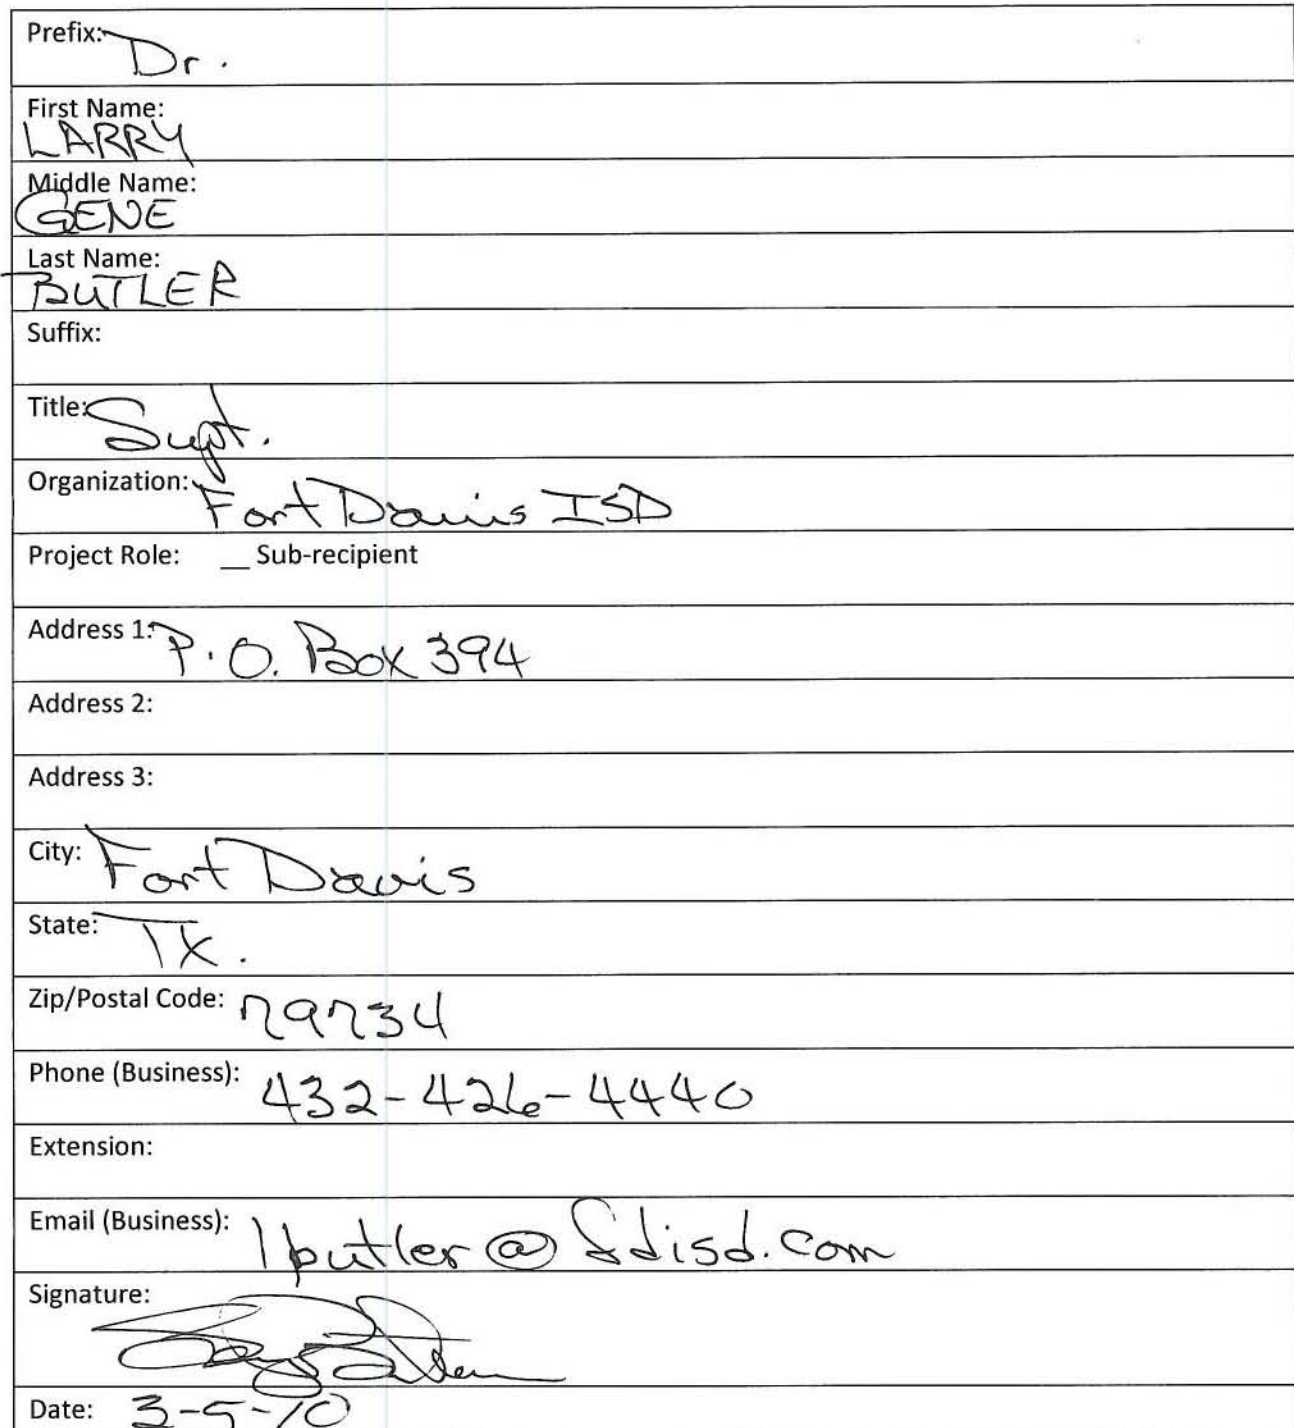 Prefix: Dr.
First Name:
LARRY
Middle Name:
GENE
Last Name:
BUTLER
Suffix:
Title: Supt.
Organization: Fort Davis ISD
Project Role: __ Sub-recipient
Address 1: P.O. Box 394
Address 2:
Address 3:
City: Fort Davis
State: TX.
Zip/Postal Code: 79734
Phone (Business): 432-426-4440
Extension:
Email (Business): lbutler@fdisd.com
Signature:
Date: 3-5-10